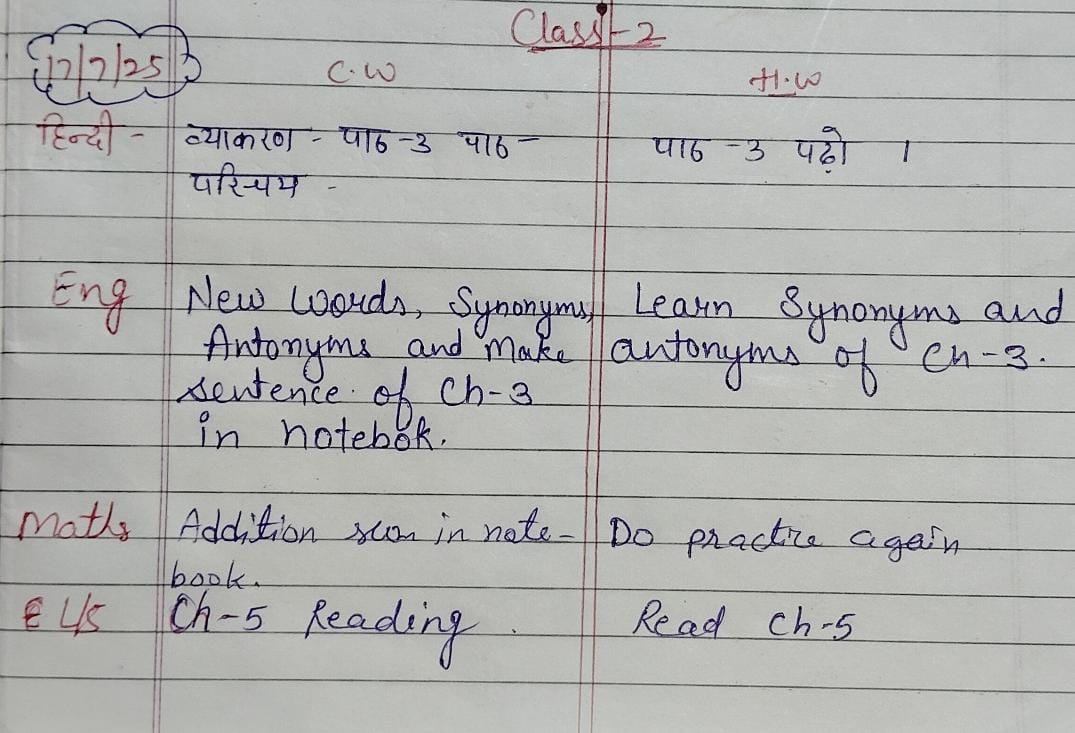 Class - 2
17/7/25 C.W H.W
हिन्दी - व्याकरण - पाठ -3 पाठ - पाठ -3 पढ़ो ।
परिचय -
Eng New words, Synonyms, Learn Synonyms and
Antonyms and Make antonyms of Ch-3.
sentence of Ch-3
in notebok.
Maths Addition in note- Do practice again
book.
Ch-5 Reading. Read Ch-5